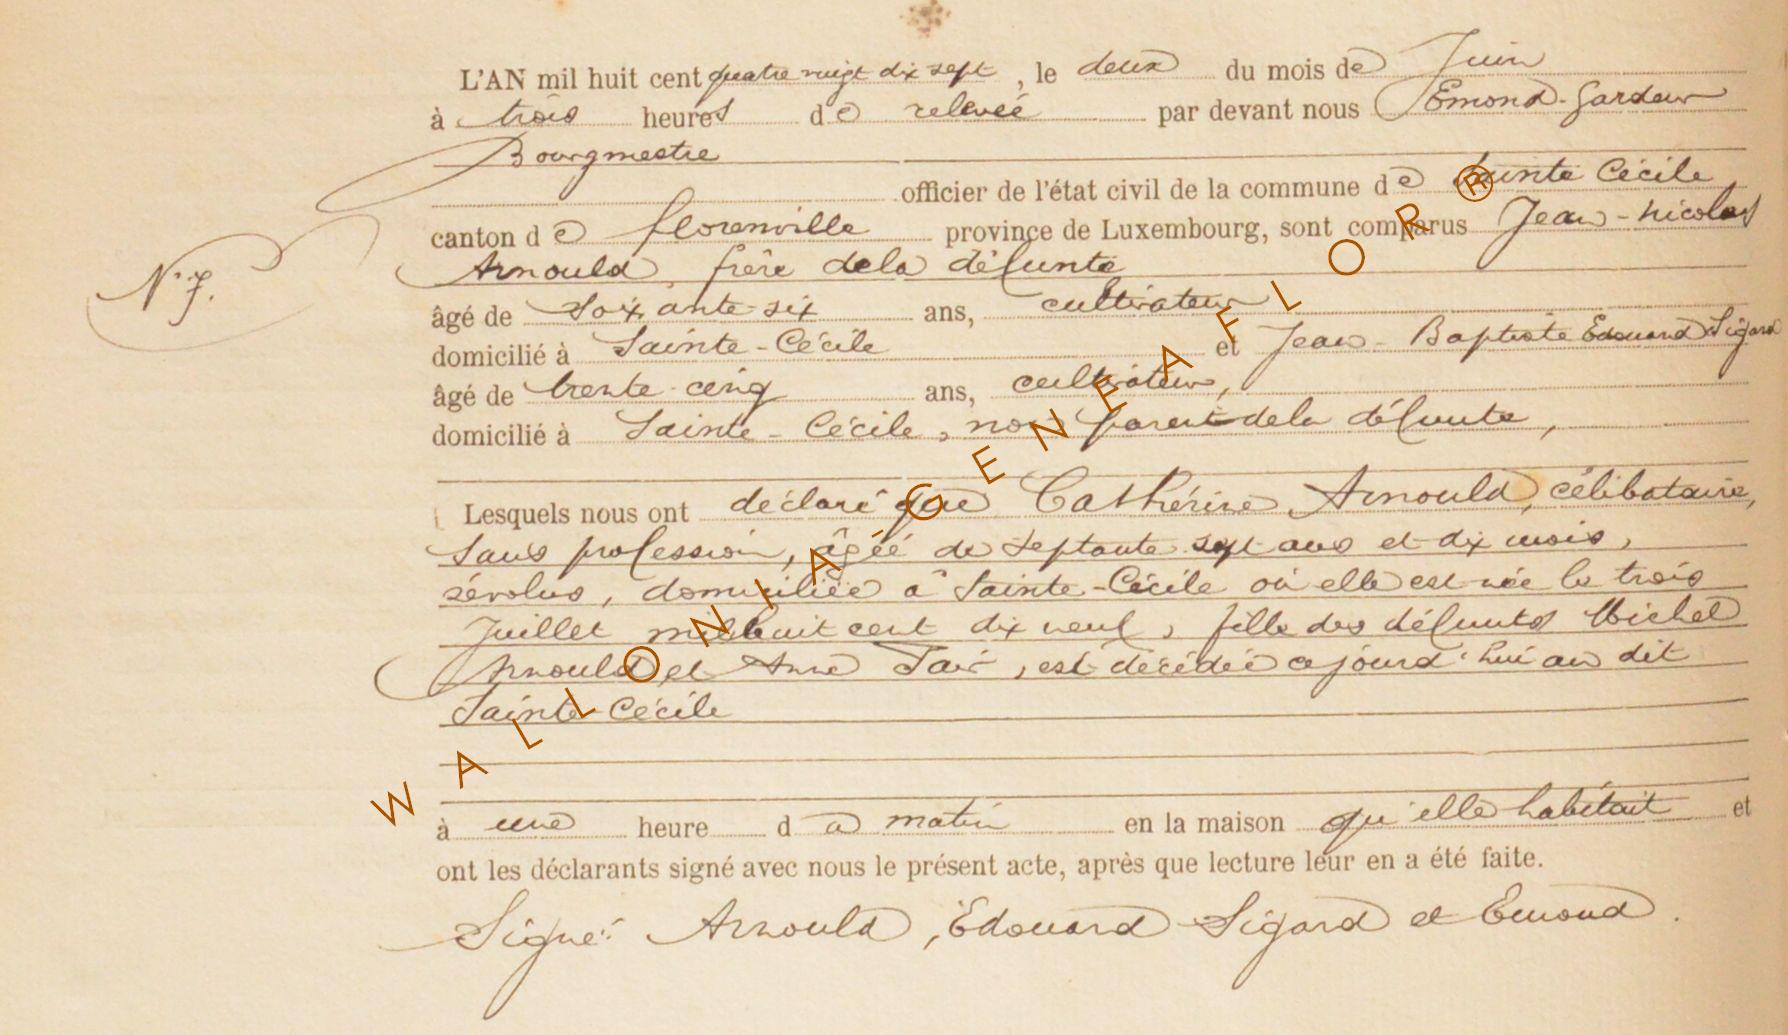 L'AN mil huit cent quatre vingt dix sept, le deux du mois de Juin
à trois heures de relevée par devant nous Emond-Gardeur
Bourgmestre
officier de l'état civil de la commune de Sainte Cécile
canton de florenville province de Luxembourg, sont comparus Jean-Nicolas
Arnould, frère dela défunte
âgé de Soixante-six ans, cultivateur
domicilié à Sainte-Cécile et Jean-Baptiste Edouard Sigard
âgé de trente-cinq ans, cultivateur,
domicilié à Sainte-Cécile, non parent dela défunte,
N° 7.
Lesquels nous ont déclaré que Cathérine Arnould, célibataire,
Sans profession, âgée de Septante sept ans et dix mois,
révolus, domiciliée à Sainte-Cécile où elle est née le trois
Juillet mil huit cent dix neuf, fille des défunts Michel
Arnould et Anne , est décédée cejourd'hui au dit
Sainte-Cécile
à une heure du matin en la maison qu'elle habitait et
ont les déclarants signé avec nous le présent acte, après que lecture leur en a été faite.
Signé: Arnould, Edouard Sigard et Emond.
WALLONIA GENEAFLOR®